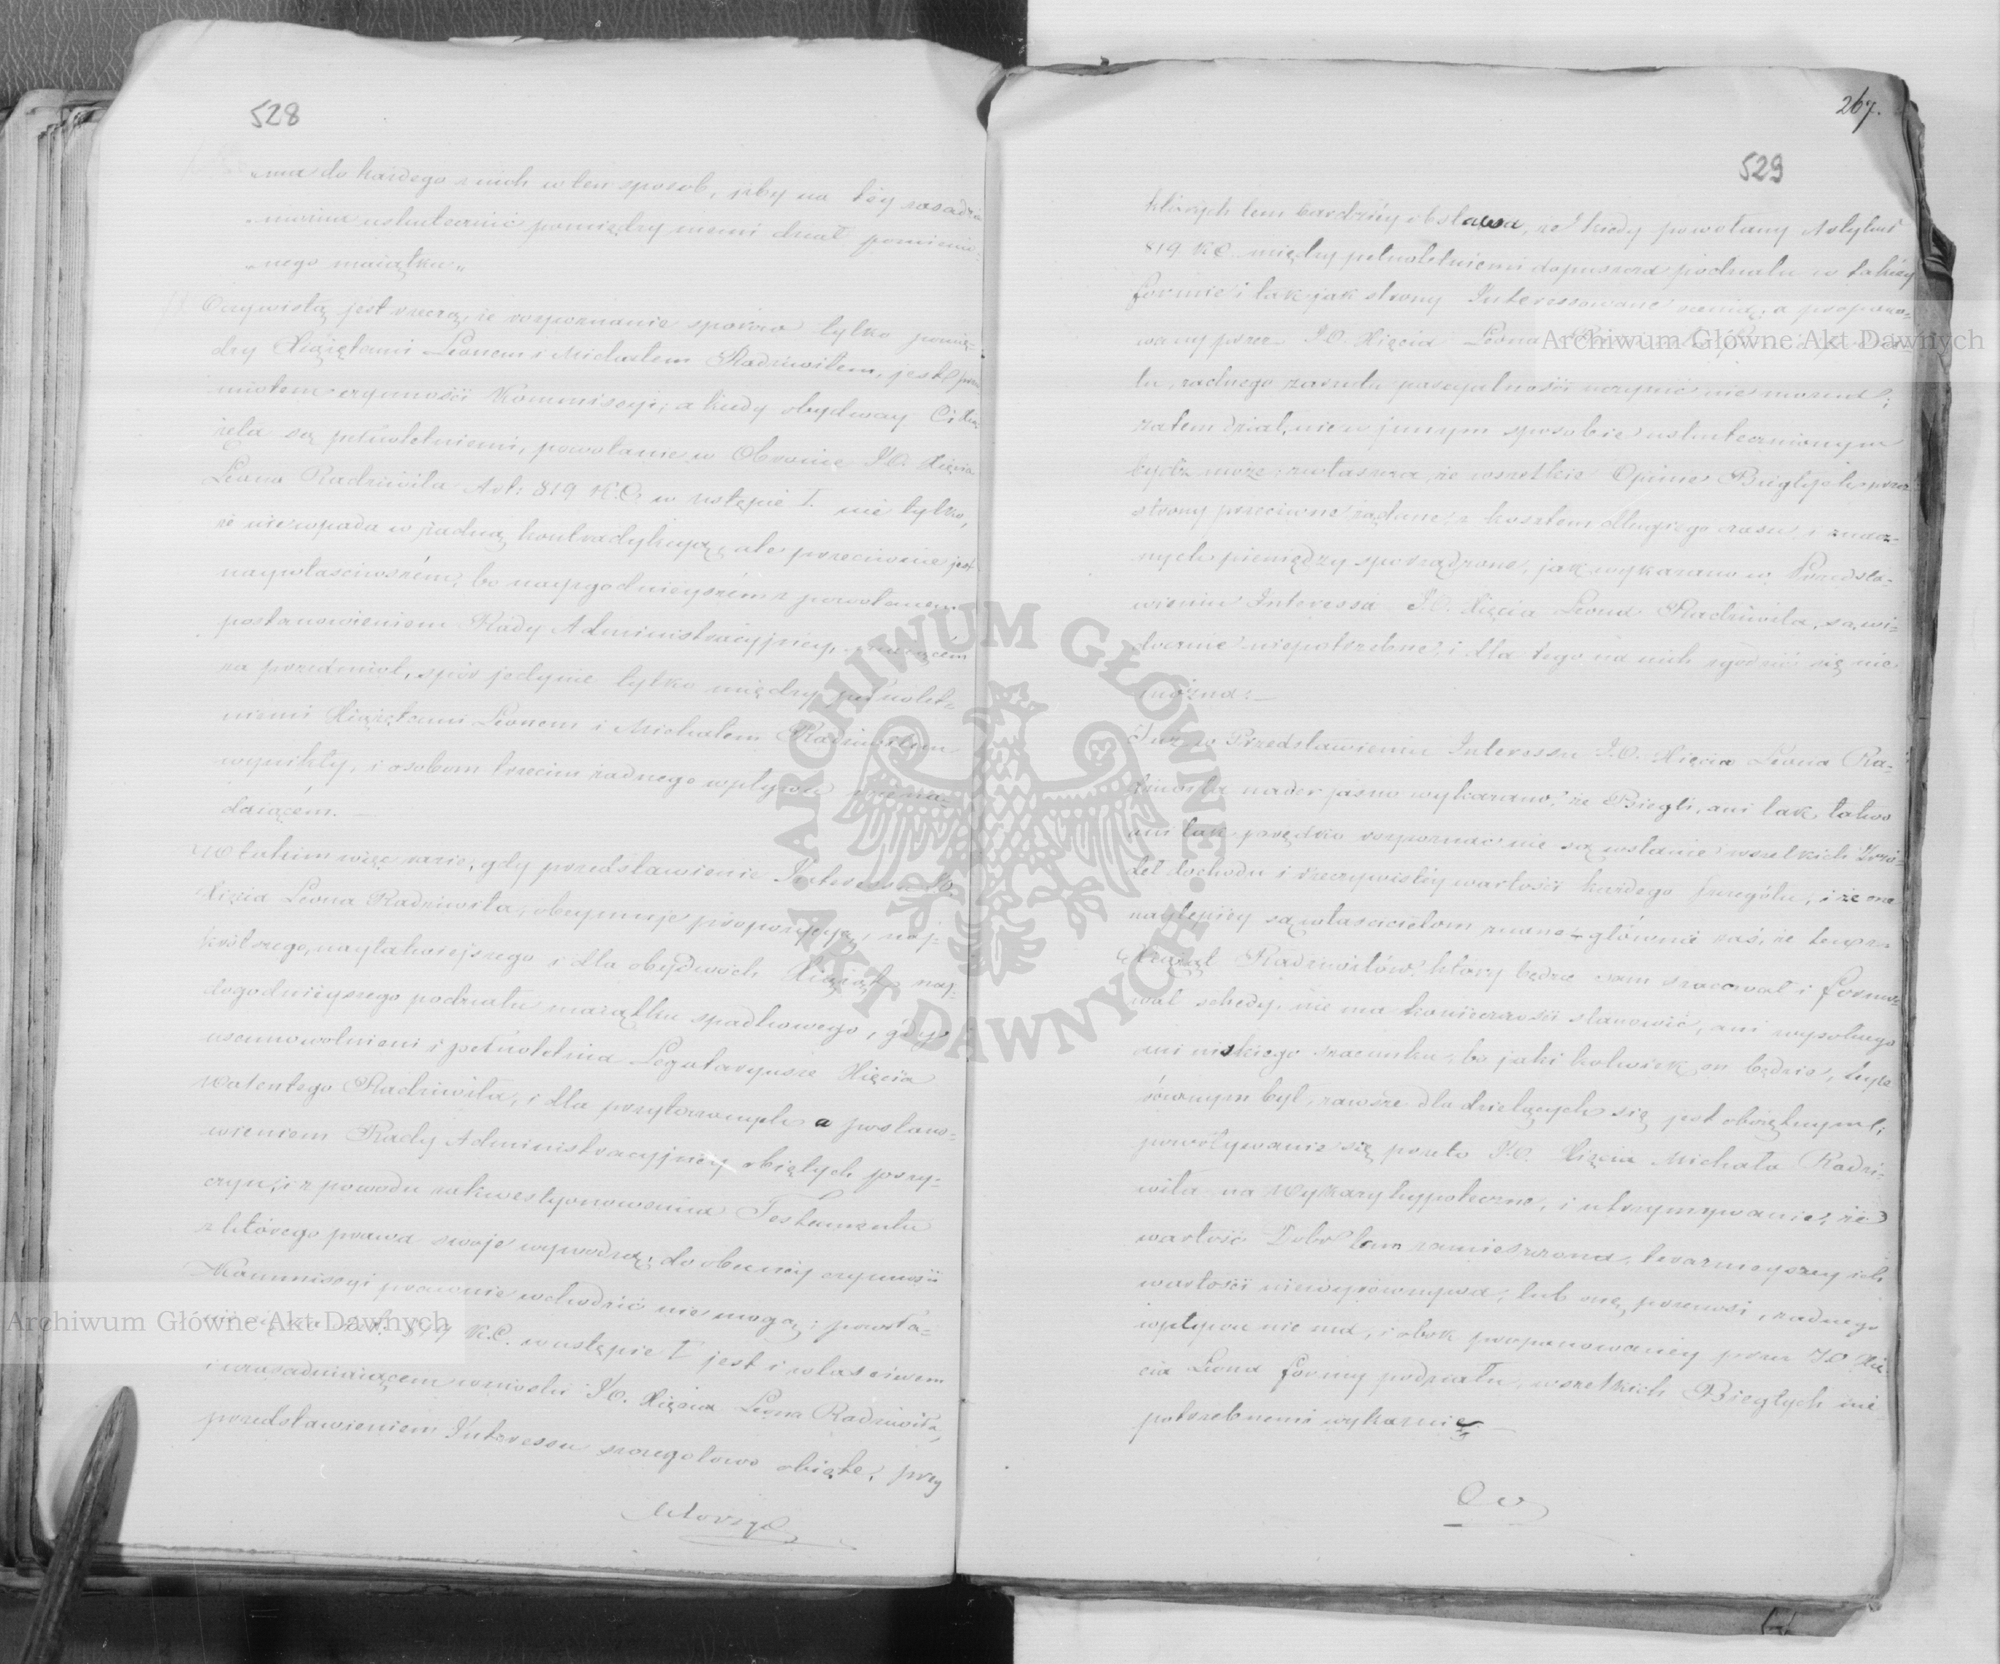 528
„ma do każdego z nich w ten sposób, iżby na tey zasadzie
„można uskutecznić pomiędzy niemi dział pomienio-
„nego maiątku„
Oczywistą jest rzeczą, że rozpoznanie sporów tylko pomię-
dzy Xiążętami Leonem i Michałem Radziwiłłem, jest przed
miotem czynności Kommissyi; a kiedy obydway Ci Xią
żęta są pełnoletniemi, powołanie w Obronie J.O. Xięcia
Leona Radziwiła Art: 819 K.C. w ustępie I nie tylko,
że nie wpada w żadną kontradykcyą, ale przeciwnie jest
naywłaściwszém, bo nayzgodnieyszém z powołanem
postanowieniem Rady Administracyjney, maiącém
za przedmiot, spór jedynie tylko między pełnolet-
niemi Xiążętami Leonem i Michałem Radziwiłłem
wynikły, i osobom trzecim żadnego wpływu nie na-
daiącém. —
W takim więc razie, gdy przedstawienie Interessu J.O.
Xięcia Leona Radziwiła, obeymuje propozycyą, naj-
krótszego, nayłatwiejszego i dla obydwóch Xiążąt nay-
dogodnieyszego podziału maiątku spadkowego, gdy
usamowolnieni i pełnoletnia Legataryusze Xięcia
Walentego Radziwiła, i dla przytoczonych a postano-
wieniem Rady Administracyjney obiętych przy-
czyn, i z powodu zakwestyonowania Testamentu
z którego prawa swoje wywodzą, do obecney czynności
Kommissyi prawnie wchodzić nie mogą; powoła-
Art. 819 K.C. w ustępie I jest i właściwem
i uzasadniaiącem wnioski J.O. Xięcia Leona Radziwiła,
przedstawieniem Interessu szczegółowo obięte, przy
których
267.
529
których tem bardziéy obstawa, że kiedy powołany Artykuł
819 K.C. między pełnoletniemi dopuszcza podziału w takiéy
formie i tak jak strony Interessowane uznią, a propono-
wany przez J.O. Xięcia Leona
tu, żadnego zarzutu parcyalności uczynić nie można;
zatem dział, nie w innym sposobie uskutecznionym
bydź może, zwłaszcza, że wszelkie Opinie Biegłych przez
strony przeciwne żądane, z kosztem długiego czasu i znacz-
nych pieniędzy sporządzone, jak wykazano w Przedsta-
wieniu Interessu J.O. Xięcia Leona Radziwiła, są wi-
docznie niepotrzebne, i dla tego na nich zgodzić się nie
można: —
Już w Przedstawieniu Interessu J.O. Xięcia Leona Ra-
dziwiła nader jasno wykazano, że Biegli, ani tak łatwo
ani tak prędko rozpoznać nie są wstanie wszelkich Źró-
deł dochodu i rzeczywistéy wartości każdego szczegółu, i że one
naylepiéy są właścicielom znane – głównie zaś, że ten z
Xiążąt Radziwiłów, który będzie sam szacował i formo-
wał schedy, nie ma konieczności stanowić, ani wysokiego
ani niskiego szacunku, bo jaki kolwiek on będzie, byle
równym był, zawsze dla dzielących się jest obojętnym;
powoływanie się przeto J.O. Xięcia Michała Radzi-
wiła na Wykazy hypoteczne, i utrzymywanie, że
wartość Dóbr tam zamieszczona, terażnieyszey ich
wartości niewyrównywa, lub onę, przenosi, żadnego
wpływu nie ma, i obok proponowanéy przez J.O. Xię
cia Leona formy podziału, wszelkich Biegłych nie
potrzebnemi wykaznie
Co
Archiwum Główne Akt Dawnych
Archiwum Główne Akt Dawnych
ARCHIWUM GŁÓWNE AKT DAWNYCH